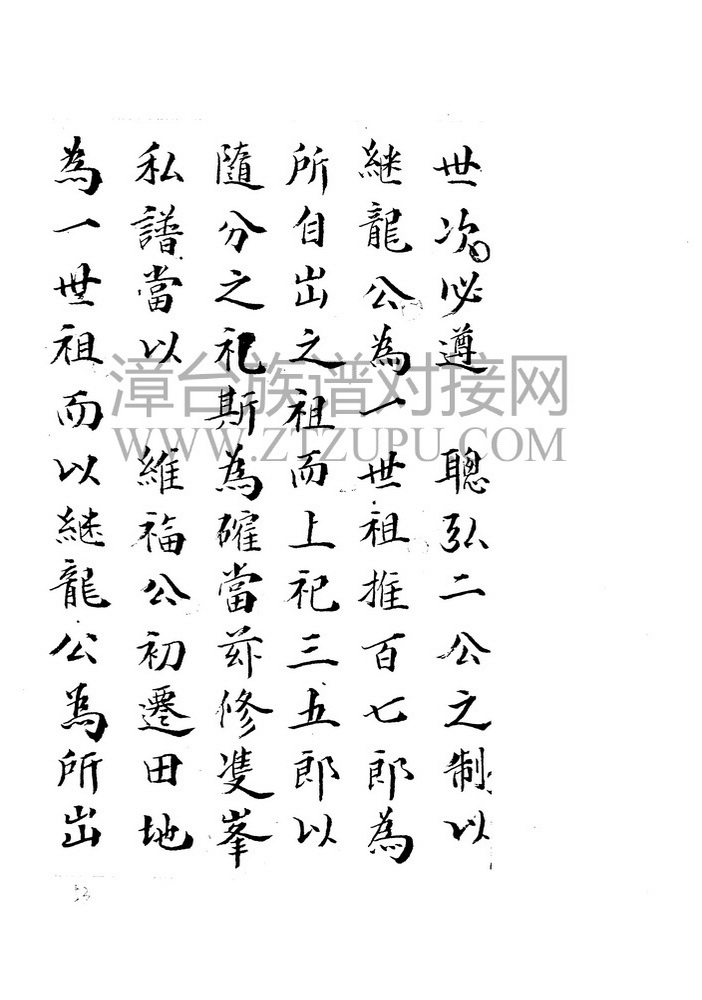 世次必遵　聰弘二公之制以
継龍公為一世祖推百七郎為
所自出之祖而上祀三五郎以
隨分之祀斯為確當茲修雙峯
私譜當以　維福公初遷田地
為一世祖而以継龍公為所出
漳台族谱对接网
WWW.ZTZUPU.COM